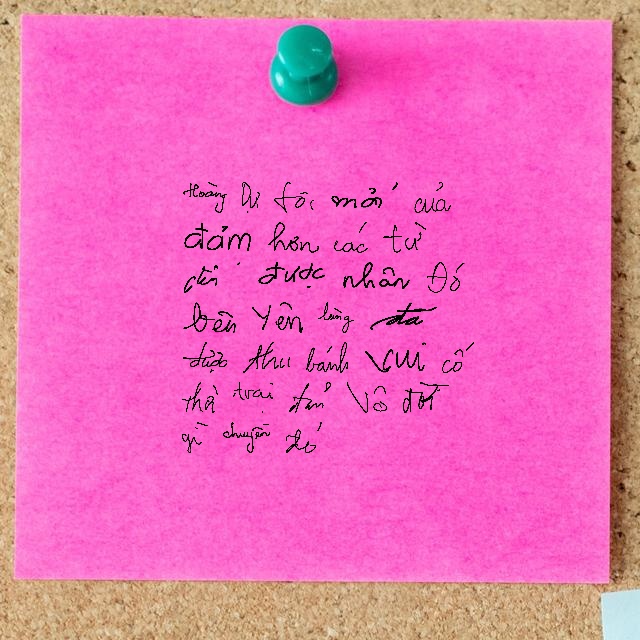 Hoàng Dự tôi mới của
đảm hơn các từ
được nhân Đó
bên Yên lùng đa
được thu bánh vui cố
thả trại Vô đời
gì chuyện đó